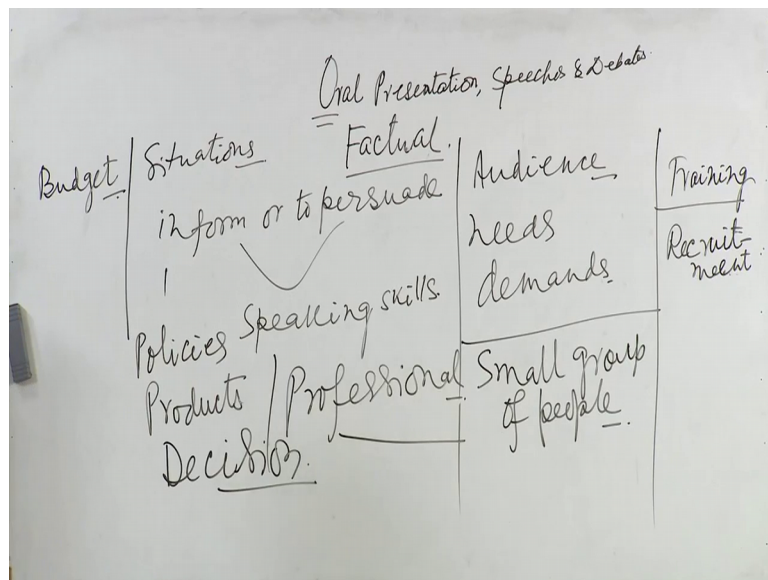 Oral Presentation, Speeches & Debates.
Factual.
Budget
Situations
inform or to persuade
Speaking skills.
Policies
Products
Decision.
Professional
Audience
needs
demands
Small group
of people
Training
Recruit-
ment